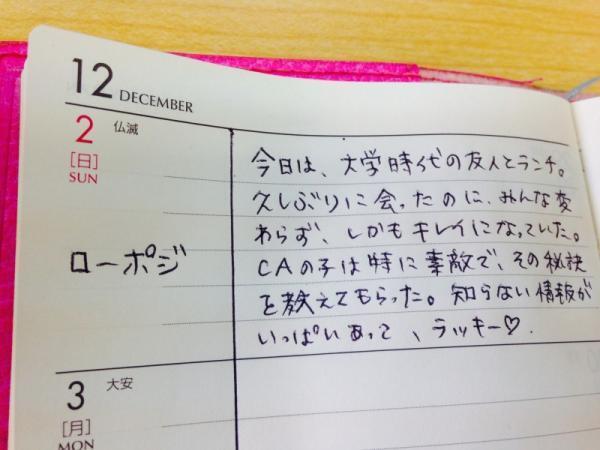 12 DECEMBER
2 仏滅
[日]
SUN
ローポジ
今日は、大学時代の友人とランチ。
久しぶりに会ったのに、みんな変
わらず、しかもキレイになっていた。
CAの子は特に素敵で、その秘訣
を教えてもらった。知らない情報が
いっぱいあって、ラッキー♡.
3 大安
[月]
MON